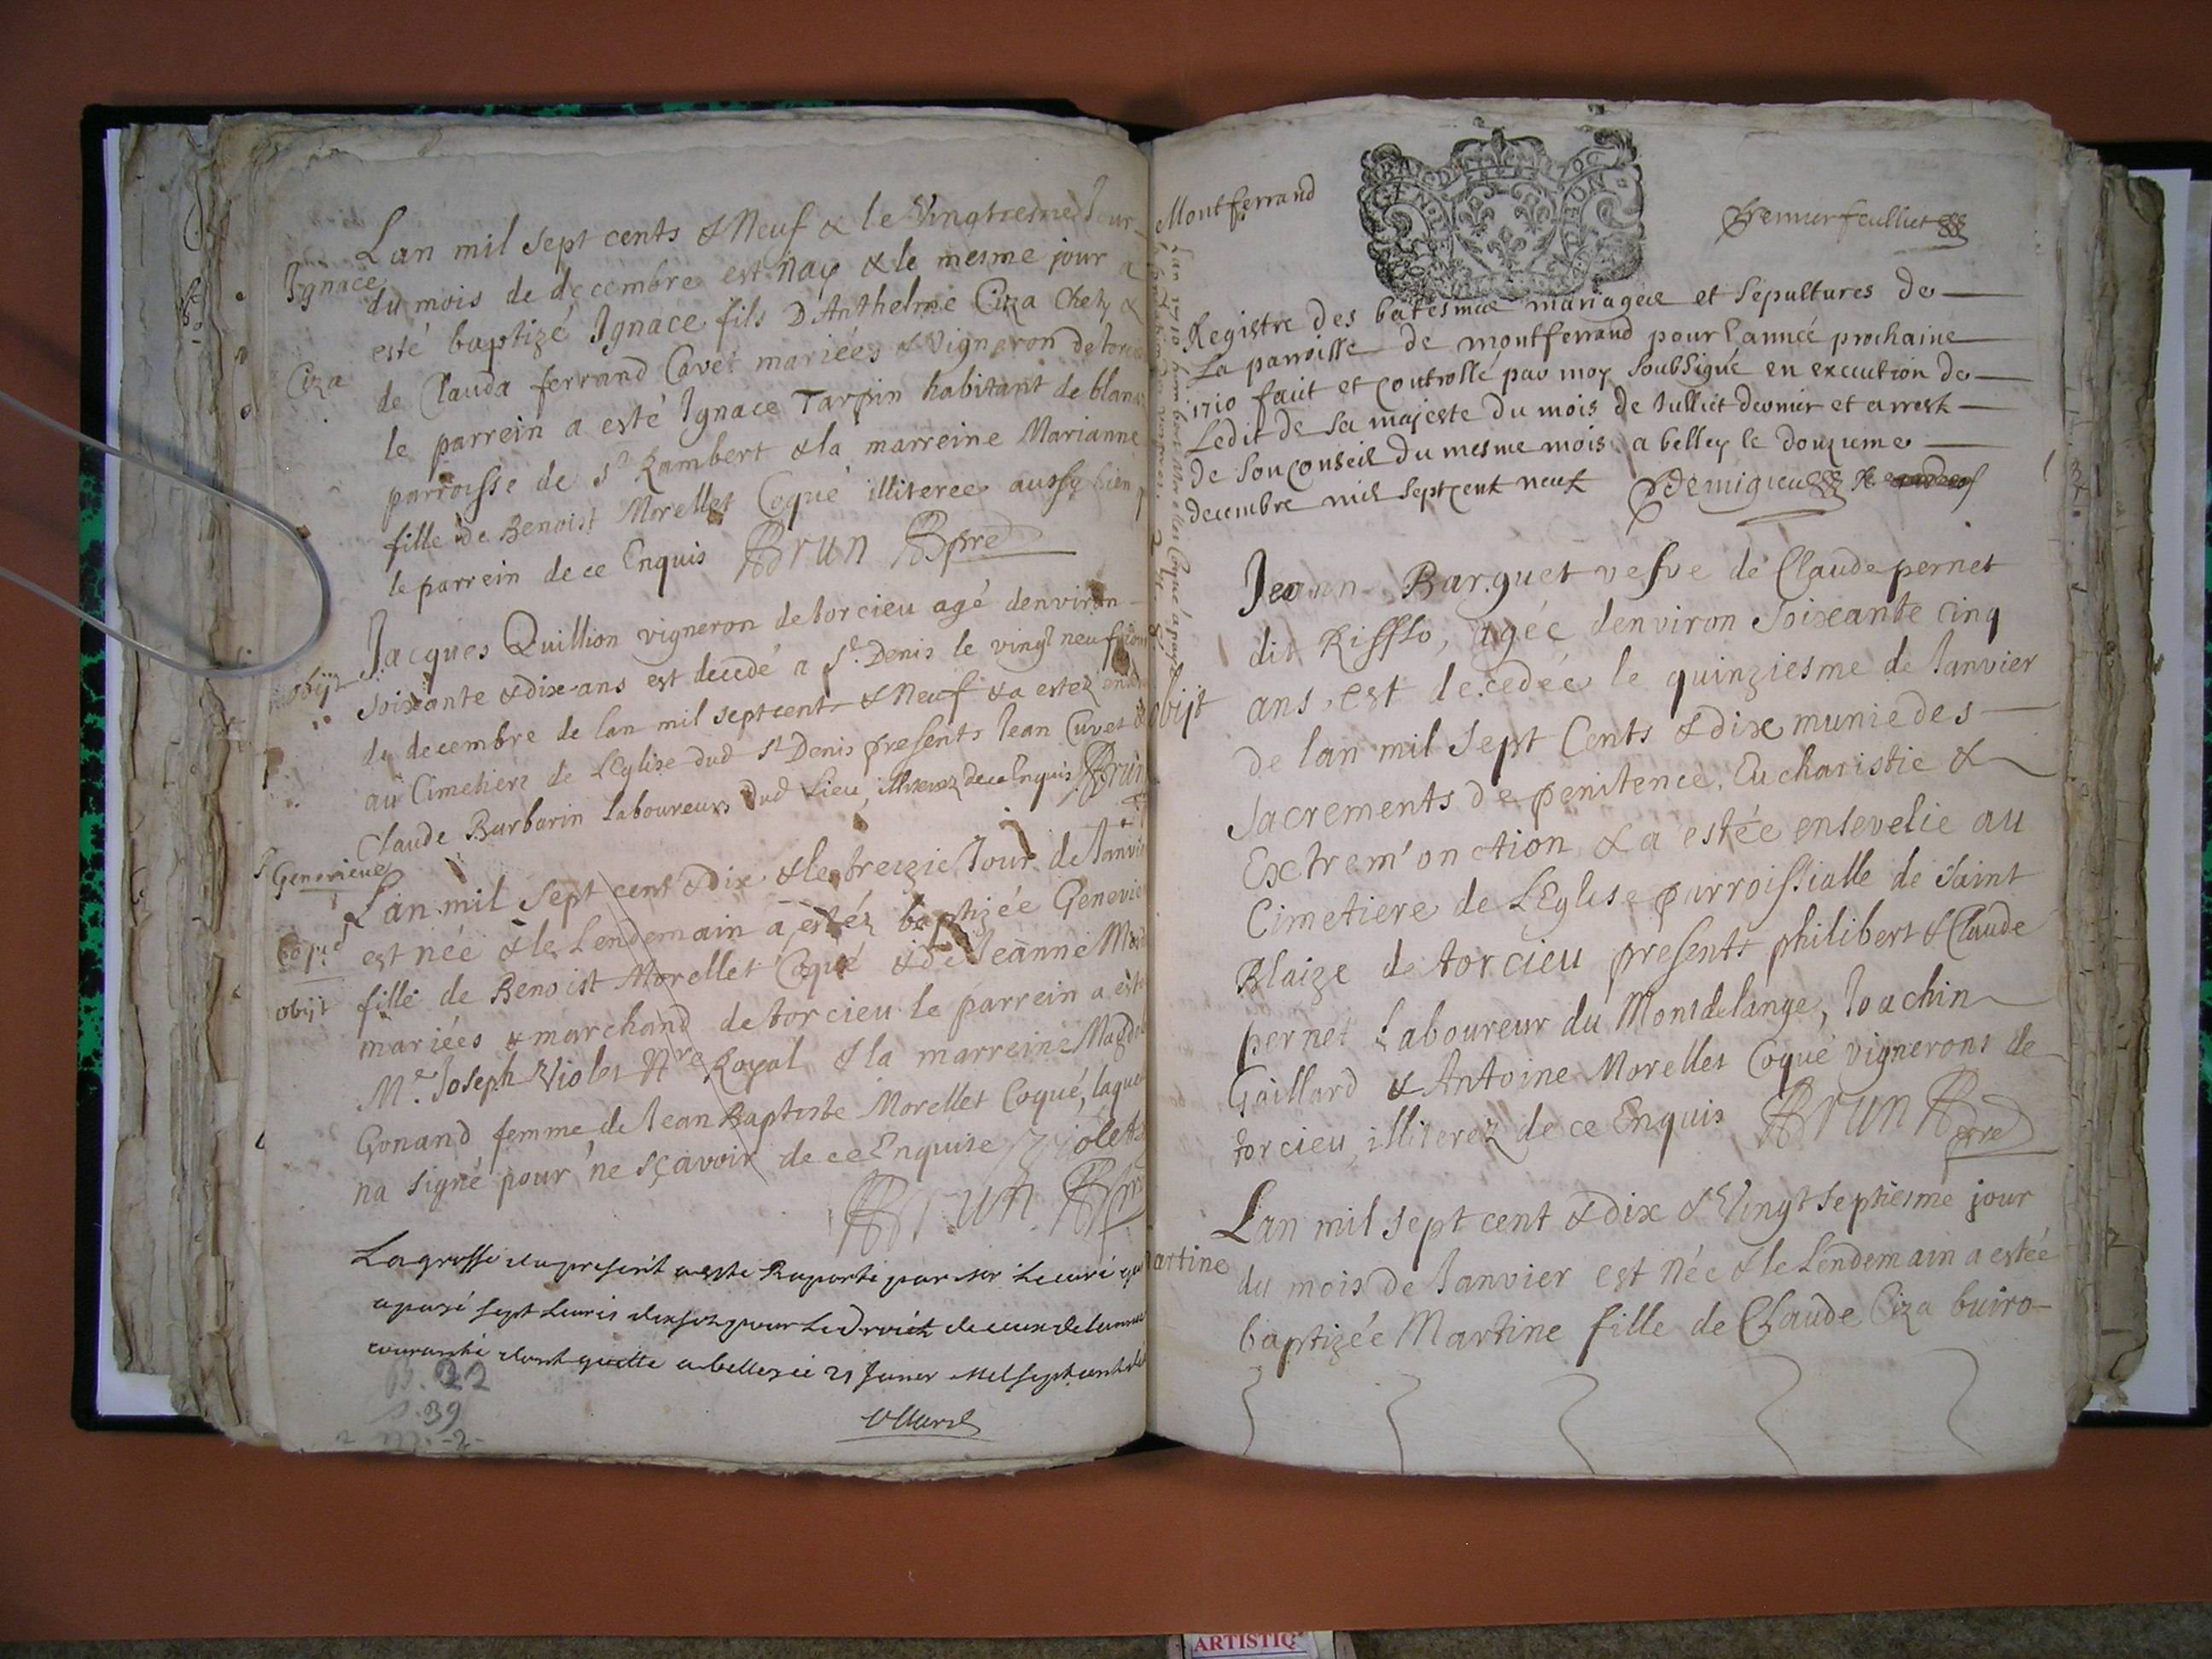 Lan mil sept cents & Neuf & le Vingtiesme Jour
Ignace
du mois de decembre est nay & le mesme jour a
esté baptizé Ignace fils D'Anthelme Ciza Chety &
Ciza
de Clauda ferrand Cavet mariées & Vigneron de torcieu
le parrein a esté Ignace Tarpin habitant de blana
parroisse de St Rambert & la marreine Marianne
fille de Benoist Morellet Coqué illiteree aussy bien q
le parrein de ce Enquis BBrun BBpre
Jacques Quillion vigneron de torcieu agé denviron
obijt
soixante & dix ans est decedé a St Denis le vingt neuf jour
de decembre de lan mil sept cents & Neuf & a estez
au Cimetiere de LEglise dud St Denis presents Jean Cuvet &
Claude Barbarin Laboureurs dud Lieu illiterez de ce Enquis BBrun
Genevieve
Lan mil sept cent & dix & le treizie Jour de Janvie
est née & le Lendemain a estéz baptizée Genevie
fille de Benoist Morellet Coqué & de Jeanne
obijt
mariées & marchand de torcieu le parrein a est
Me Joseph Violet Nre Royal & la marreine Magd
Gonand femme de Jean Baptiste Morellet Coqué, laque
na signé pour ne sçavoir de ce Enquise Violet
BBrun BBpre
La grosse du present a esté Raporté par sr Le curé
a payé sept Livres dix solz pour Le droict de
courante dont quitte a belley ce 21 Janer mil sept cent
p. 22
p. 39
m. -2-
Montferrand
GEN DIJON
premier feulliet
Registre des batesmes mariages et Sepultures de
La parroisse de montferrand pour l'année prochaine
1710 fait et controllé par moy Soubsigné en execution de
Ledit de sa majeste du mois de Julliet dernier et arrest
de son conseil du mesme mois a belley le douzieme
decembre mil sept cent neuf Demigieu
Jeann Barguet vefve de Claude pernet
dit Rifflo, agée denviron soixante cinq
obijt
ans, est decedée le quinziesme de Janvier
de lan mil sept Cents & dix munie des
Sacrements de penitence, Eucharistie &
Extrem'onction & a estée ensevelie au
Cimetiere de LEglise parroissialle de Saint
Blaize de torcieu presents philibert & Claude
pernet Laboureur du Montdelange, Joachin
Gaillard & Antoine Morellet Coqué vignerons de
torcieu illiterez de ce Enquis BBrun BBpre
Lan mil sept cent & dix & Vingt septiesme jour
artine
du mois de Janvier est née & le Lendemain a estée
baptizée Martine fille de Claude Ciza buiro
ARTISTIQ